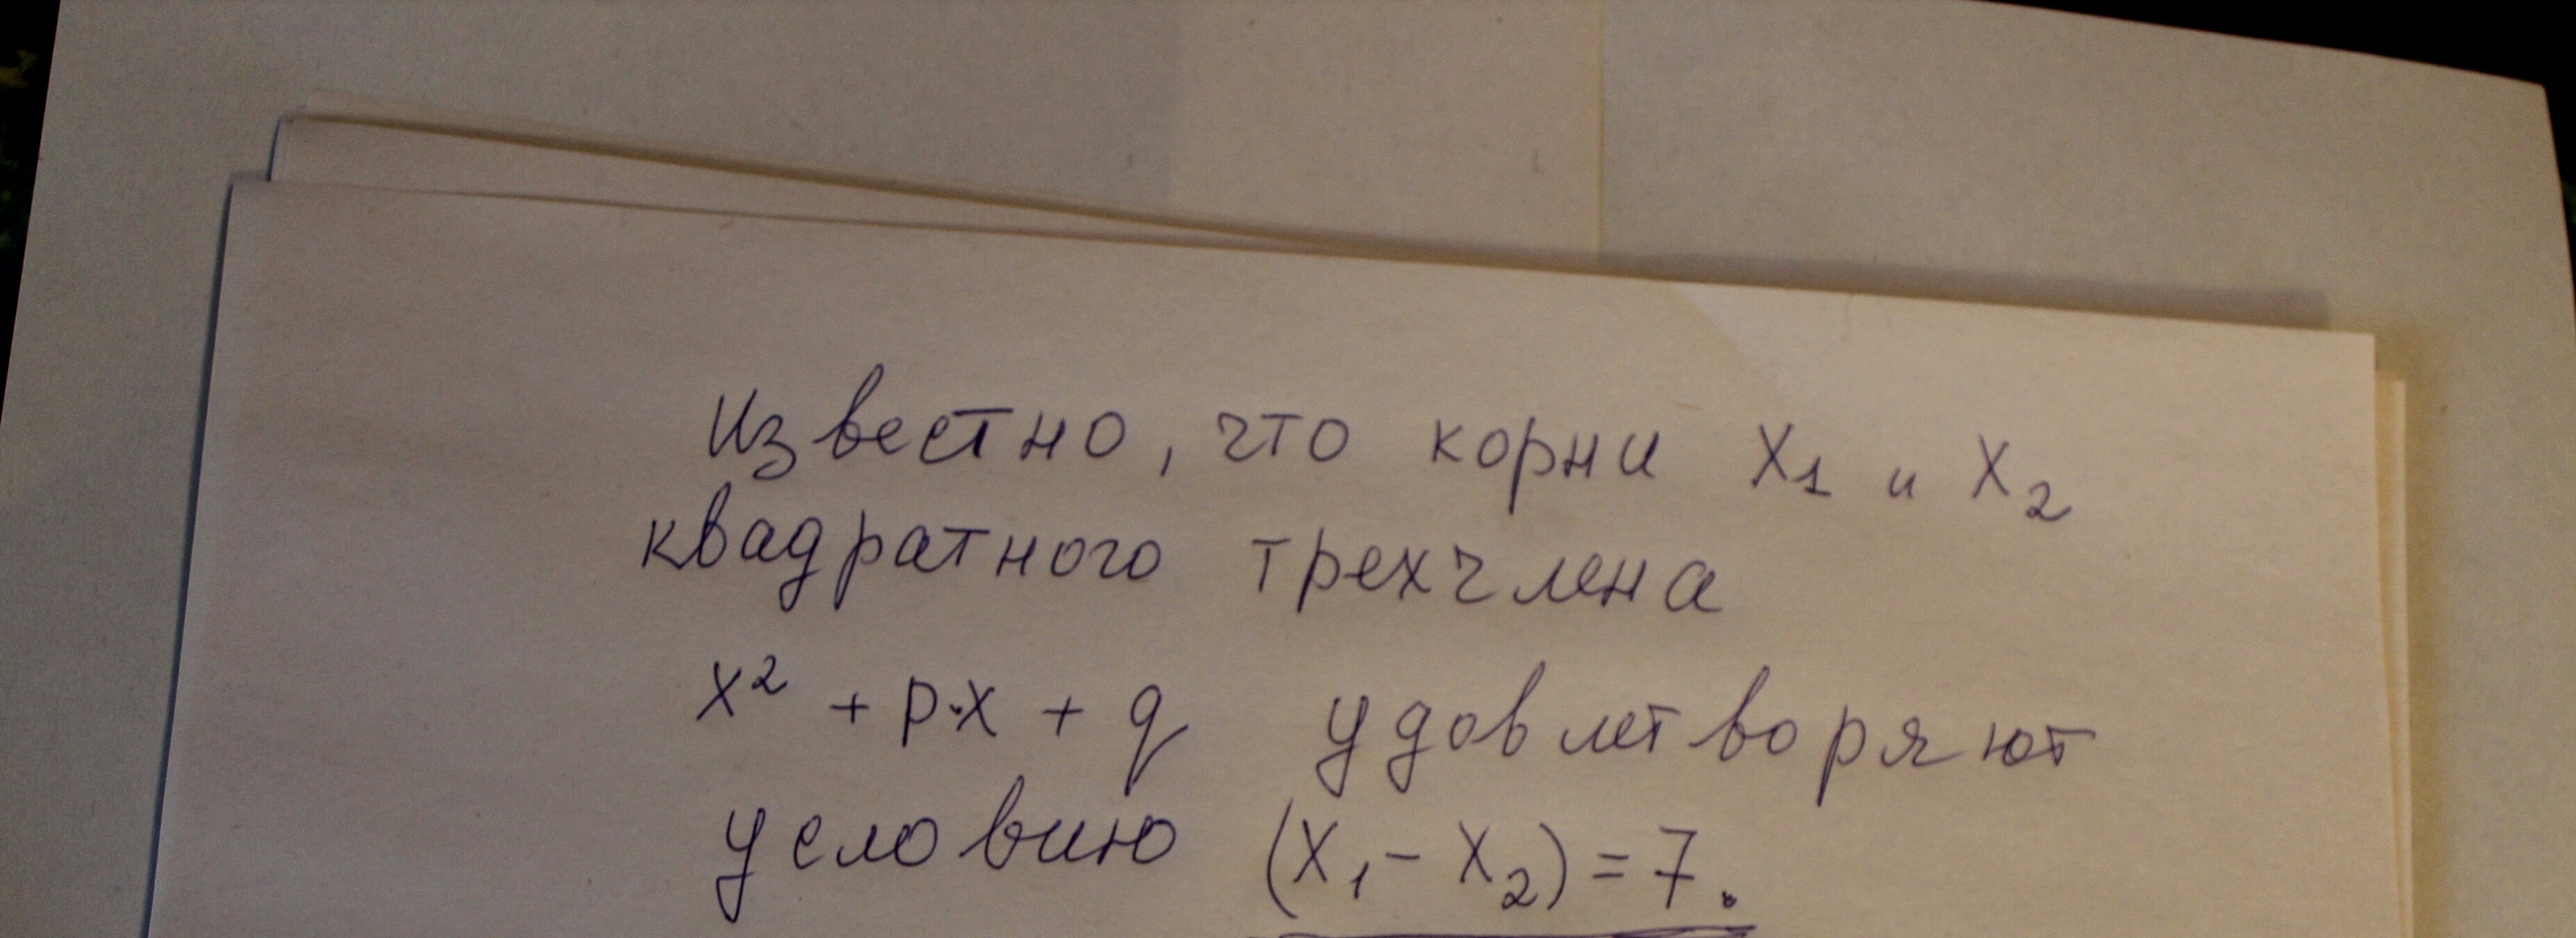 Известно, что корни x₁ и x₂
квадратного трехчлена
x² + p·x + q удовлетворяют
условию (x₁ - x₂) = 7.